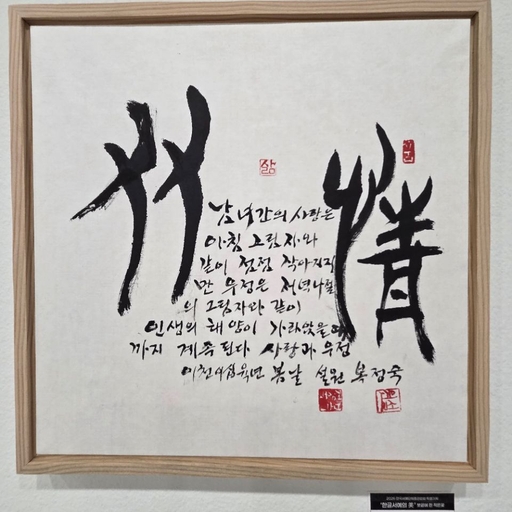 友情
삶
남녀간의 사랑은
아침 그림자와
같이 점점 작아지지
만 우정은 저녁나절
의 그림자와 같이
인생의 태양이 가라앉을때
까지 계속된다 사랑과 우정
이천이십육년 봄날 설원 복정숙
"한글서예의 美"